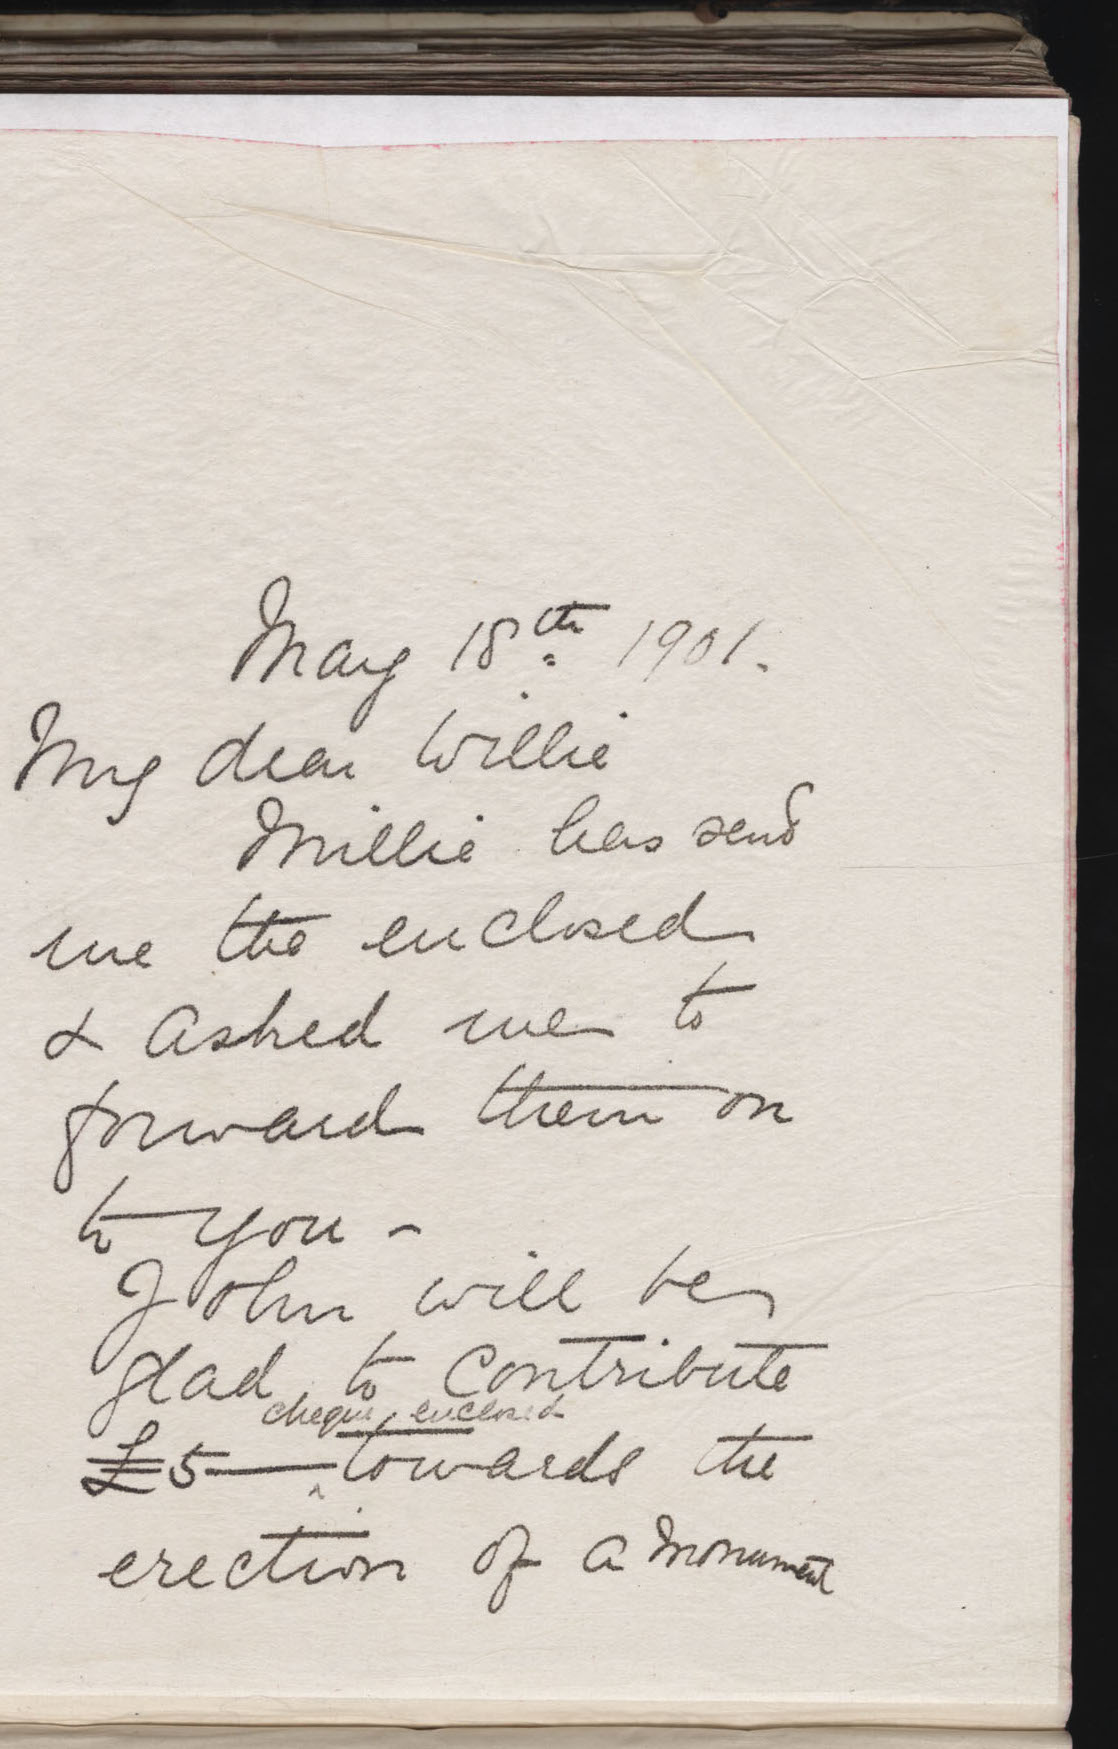 May 18th 1901.
My dear Willie
Millie has send
me the enclosed
& asked me to
forward them on
to you -
John will be
glad to contribute
cheque enclosed
£5 — towards the
erection of a Monument